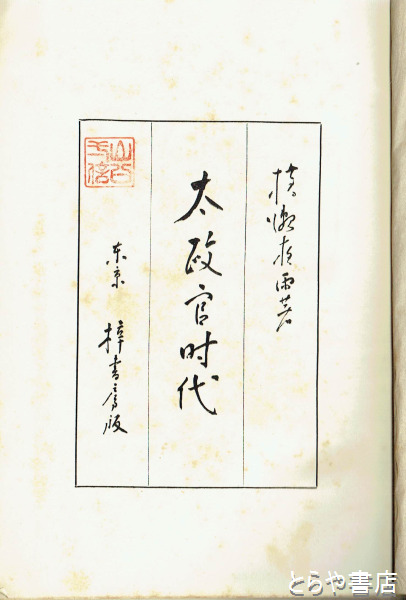 横瀬夜雨著
太政官時代
東京 梓書房版
とらや書店